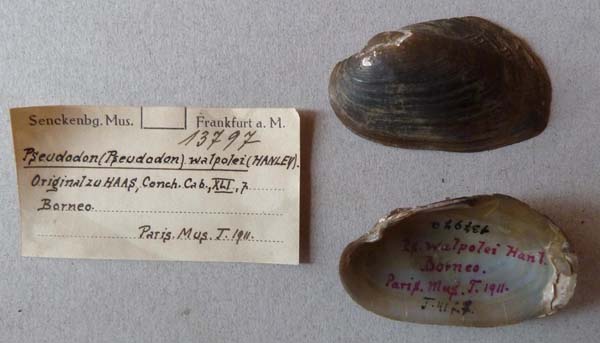 Senckenbg. Mus. Frankfurt a. M.
13797
Pseudodon (Pseudodon) walpolei (HANLEY).
Original zu HAAS, Conch. Cab., XLI, 7.
Borneo.
Paris. Mus. T. 1911.
13797a
Ps. walpolei Hanl.
Borneo.
Paris. Mus. T. 1911.
T. 41 f. 7.